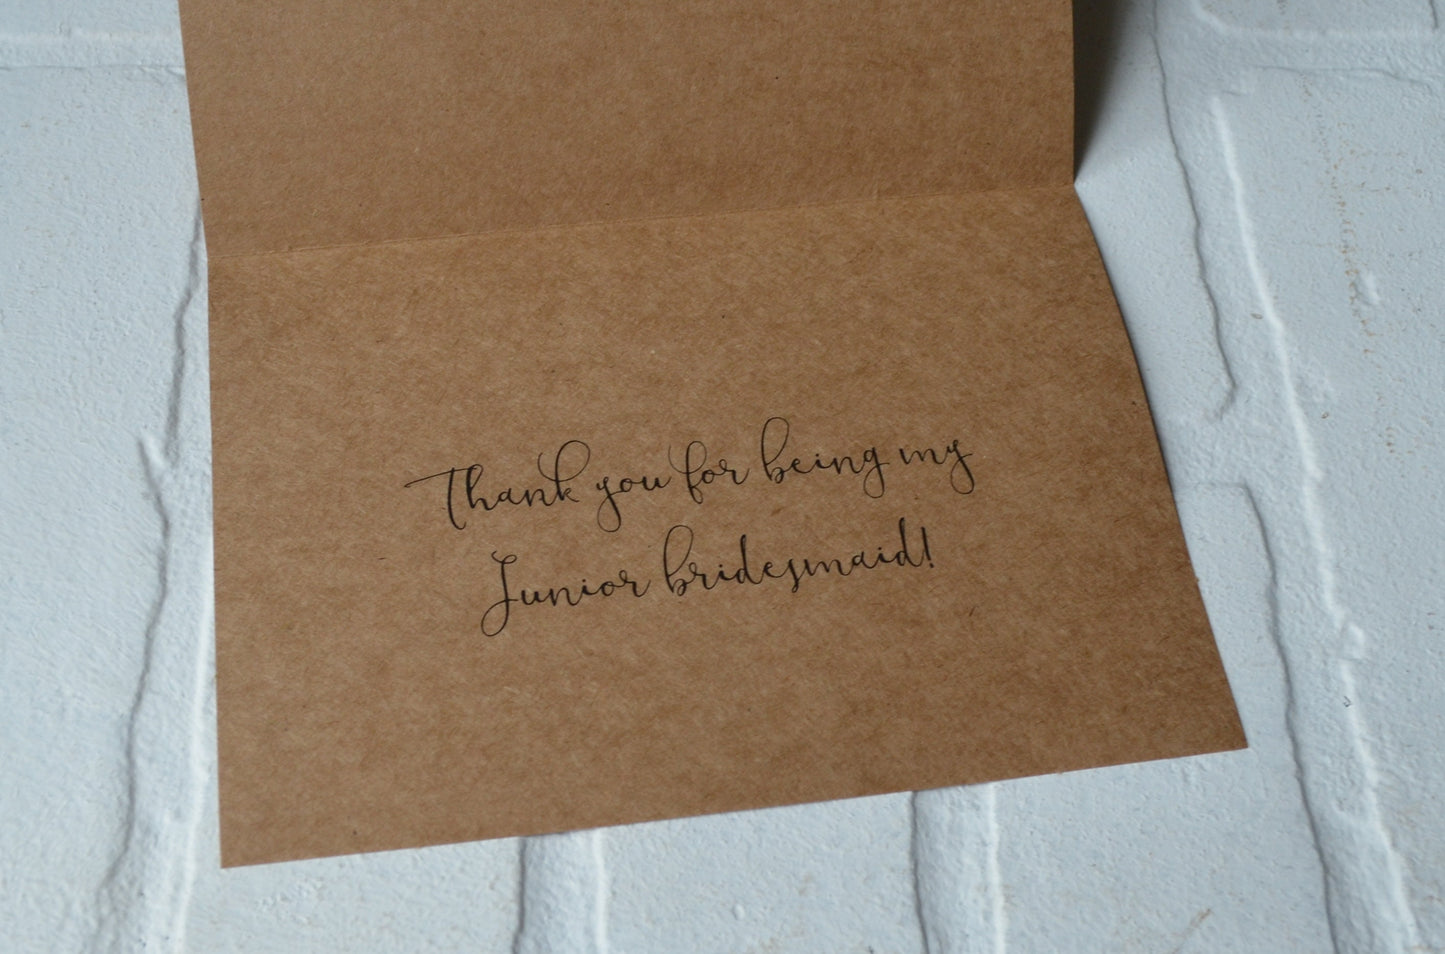 Thank you for being my
Junior bridesmaid!